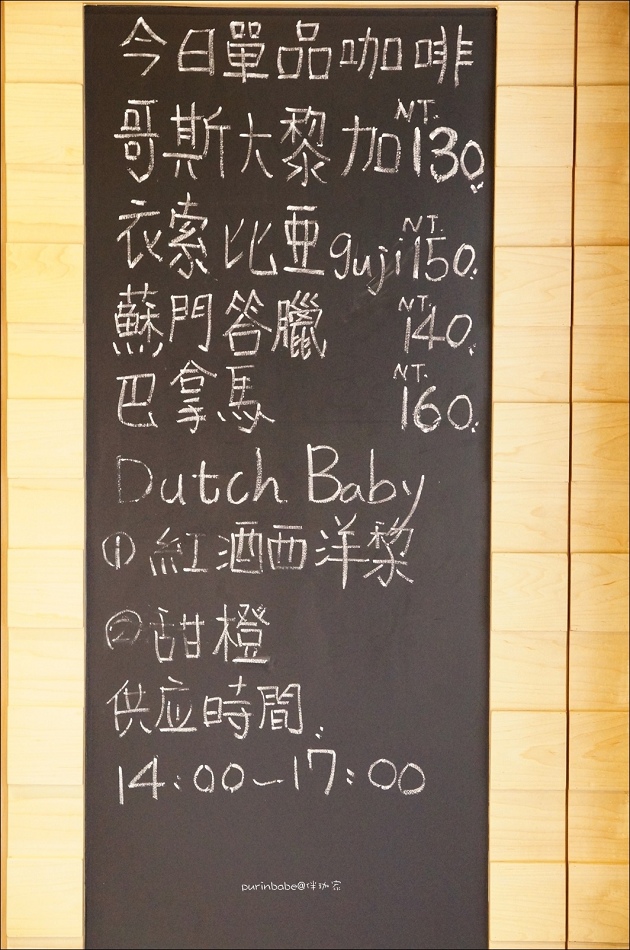 今日單品咖啡
哥斯大黎加 NT.130.
衣索比亜 guji NT.150.
蘇門答臘 NT.140.
巴拿馬 NT.160.
Dutch Baby
① 紅酒西洋黎
② 甜橙
供应時間:
14:00~17:00
purinbabe@伴珈家